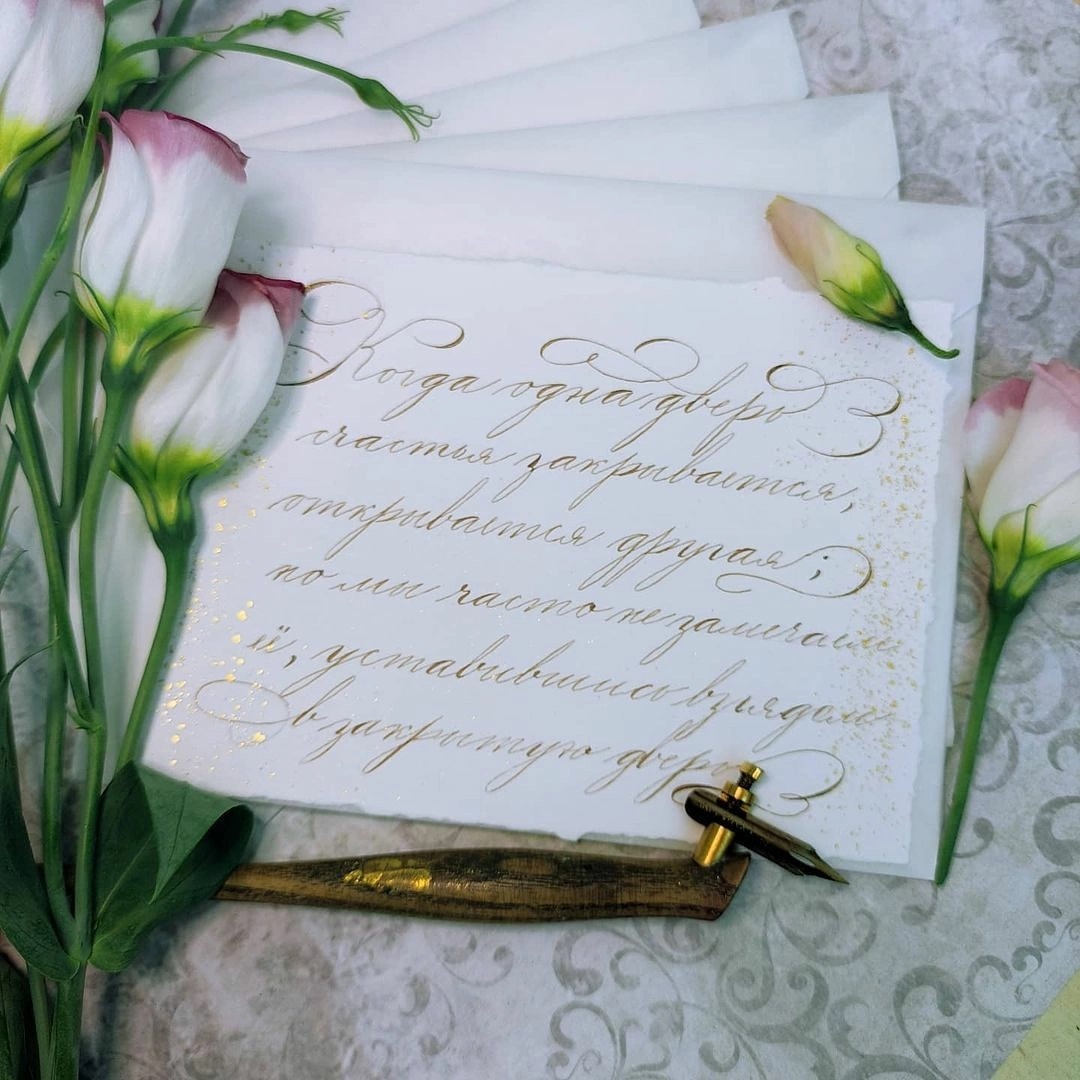 Когда одна дверь
счастья закрывается,
открывается другая;
но мы часто не замечаем
её, уставившись взглядом
в закрытую дверь